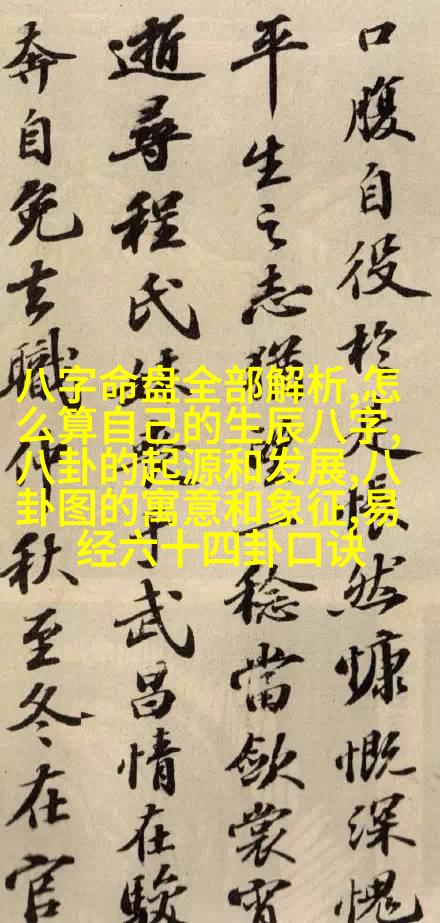 口腹自役於是悵然慷慨深愧
平生之志猶稔當斂裳宵
逝尋程氏妹武昌情在駿
奔自免去職仲秋至冬在官
八字命盘全部解析,怎
么算自己的生辰八字,
八卦的起源和发展,八
卦图的寓意和象征,易
经六十四卦口诀